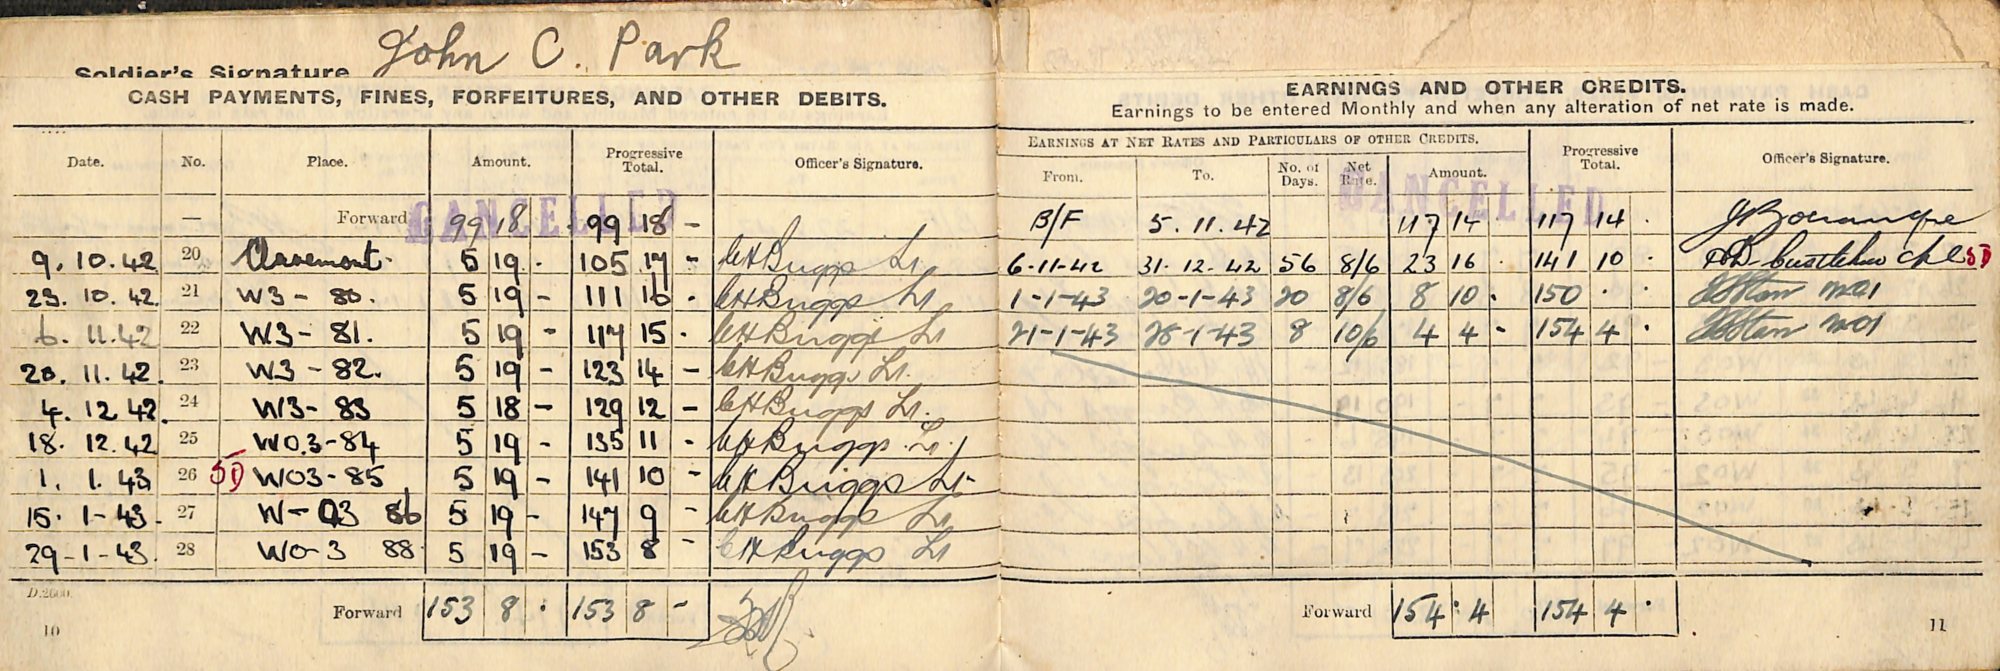 Soldier's Signature John C. Park
CASH PAYMENTS, FINES, FORFEITURES, AND OTHER DEBITS.
Date. No. Place. Amount. Progressive Total. Officer's Signature.
CANCELLED
— Forward 99 18 99 18 -
9. 10. 42 20 Claremont 5 19 . 105 17 - CH Briggs Lt.
23. 10. 42. 21 W3 - 80. 5 19 - 111 16 . CH Briggs Lt
6. 11. 42 22 W3 - 81. 5 19 - 117 15 . CH Briggs Lt
20. 11. 42. 23 W3 - 82. 5 19 - 123 14 - CH Briggs Lt.
4. 12 42. 24 W3 - 83 5 18 - 129 12 - CH Briggs Lt.
18. 12. 42 25 W03-84 5 19 - 135 11 - CH Briggs Lt.
1. 1. 43 26 SD W03-85 5 19 - 141 10 - CH Briggs Lt.
15. 1-43. 27 W-03 86 5 19 - 147 9 - CH Briggs Lt
29-1-43. 28 W0-3 88 5 19 - 153 8 - CH Briggs Lt
D.2600.
Forward 153 8 . 153 8 -
10
EARNINGS AND OTHER CREDITS.
Earnings to be entered Monthly and when any alteration of net rate is made.
EARNINGS AT NET RATES AND PARTICULARS OF OTHER CREDITS.
From. To. No. of Days. Net Rate. Amount. Progressive Total. Officer's Signature.
CANCELLED
B/F 5. 11. 42 117 14 117 14 .
6-11-42 31. 12. 42 56 8/6 23 16 . 141 10 . SD
1-1-43 20-1-43 20 8/6 8 10 . 150 . .
21-1-43 28-1-43 8 10/6 4 4 - 154 4 .
Forward 154 . 4 154 4 .
11